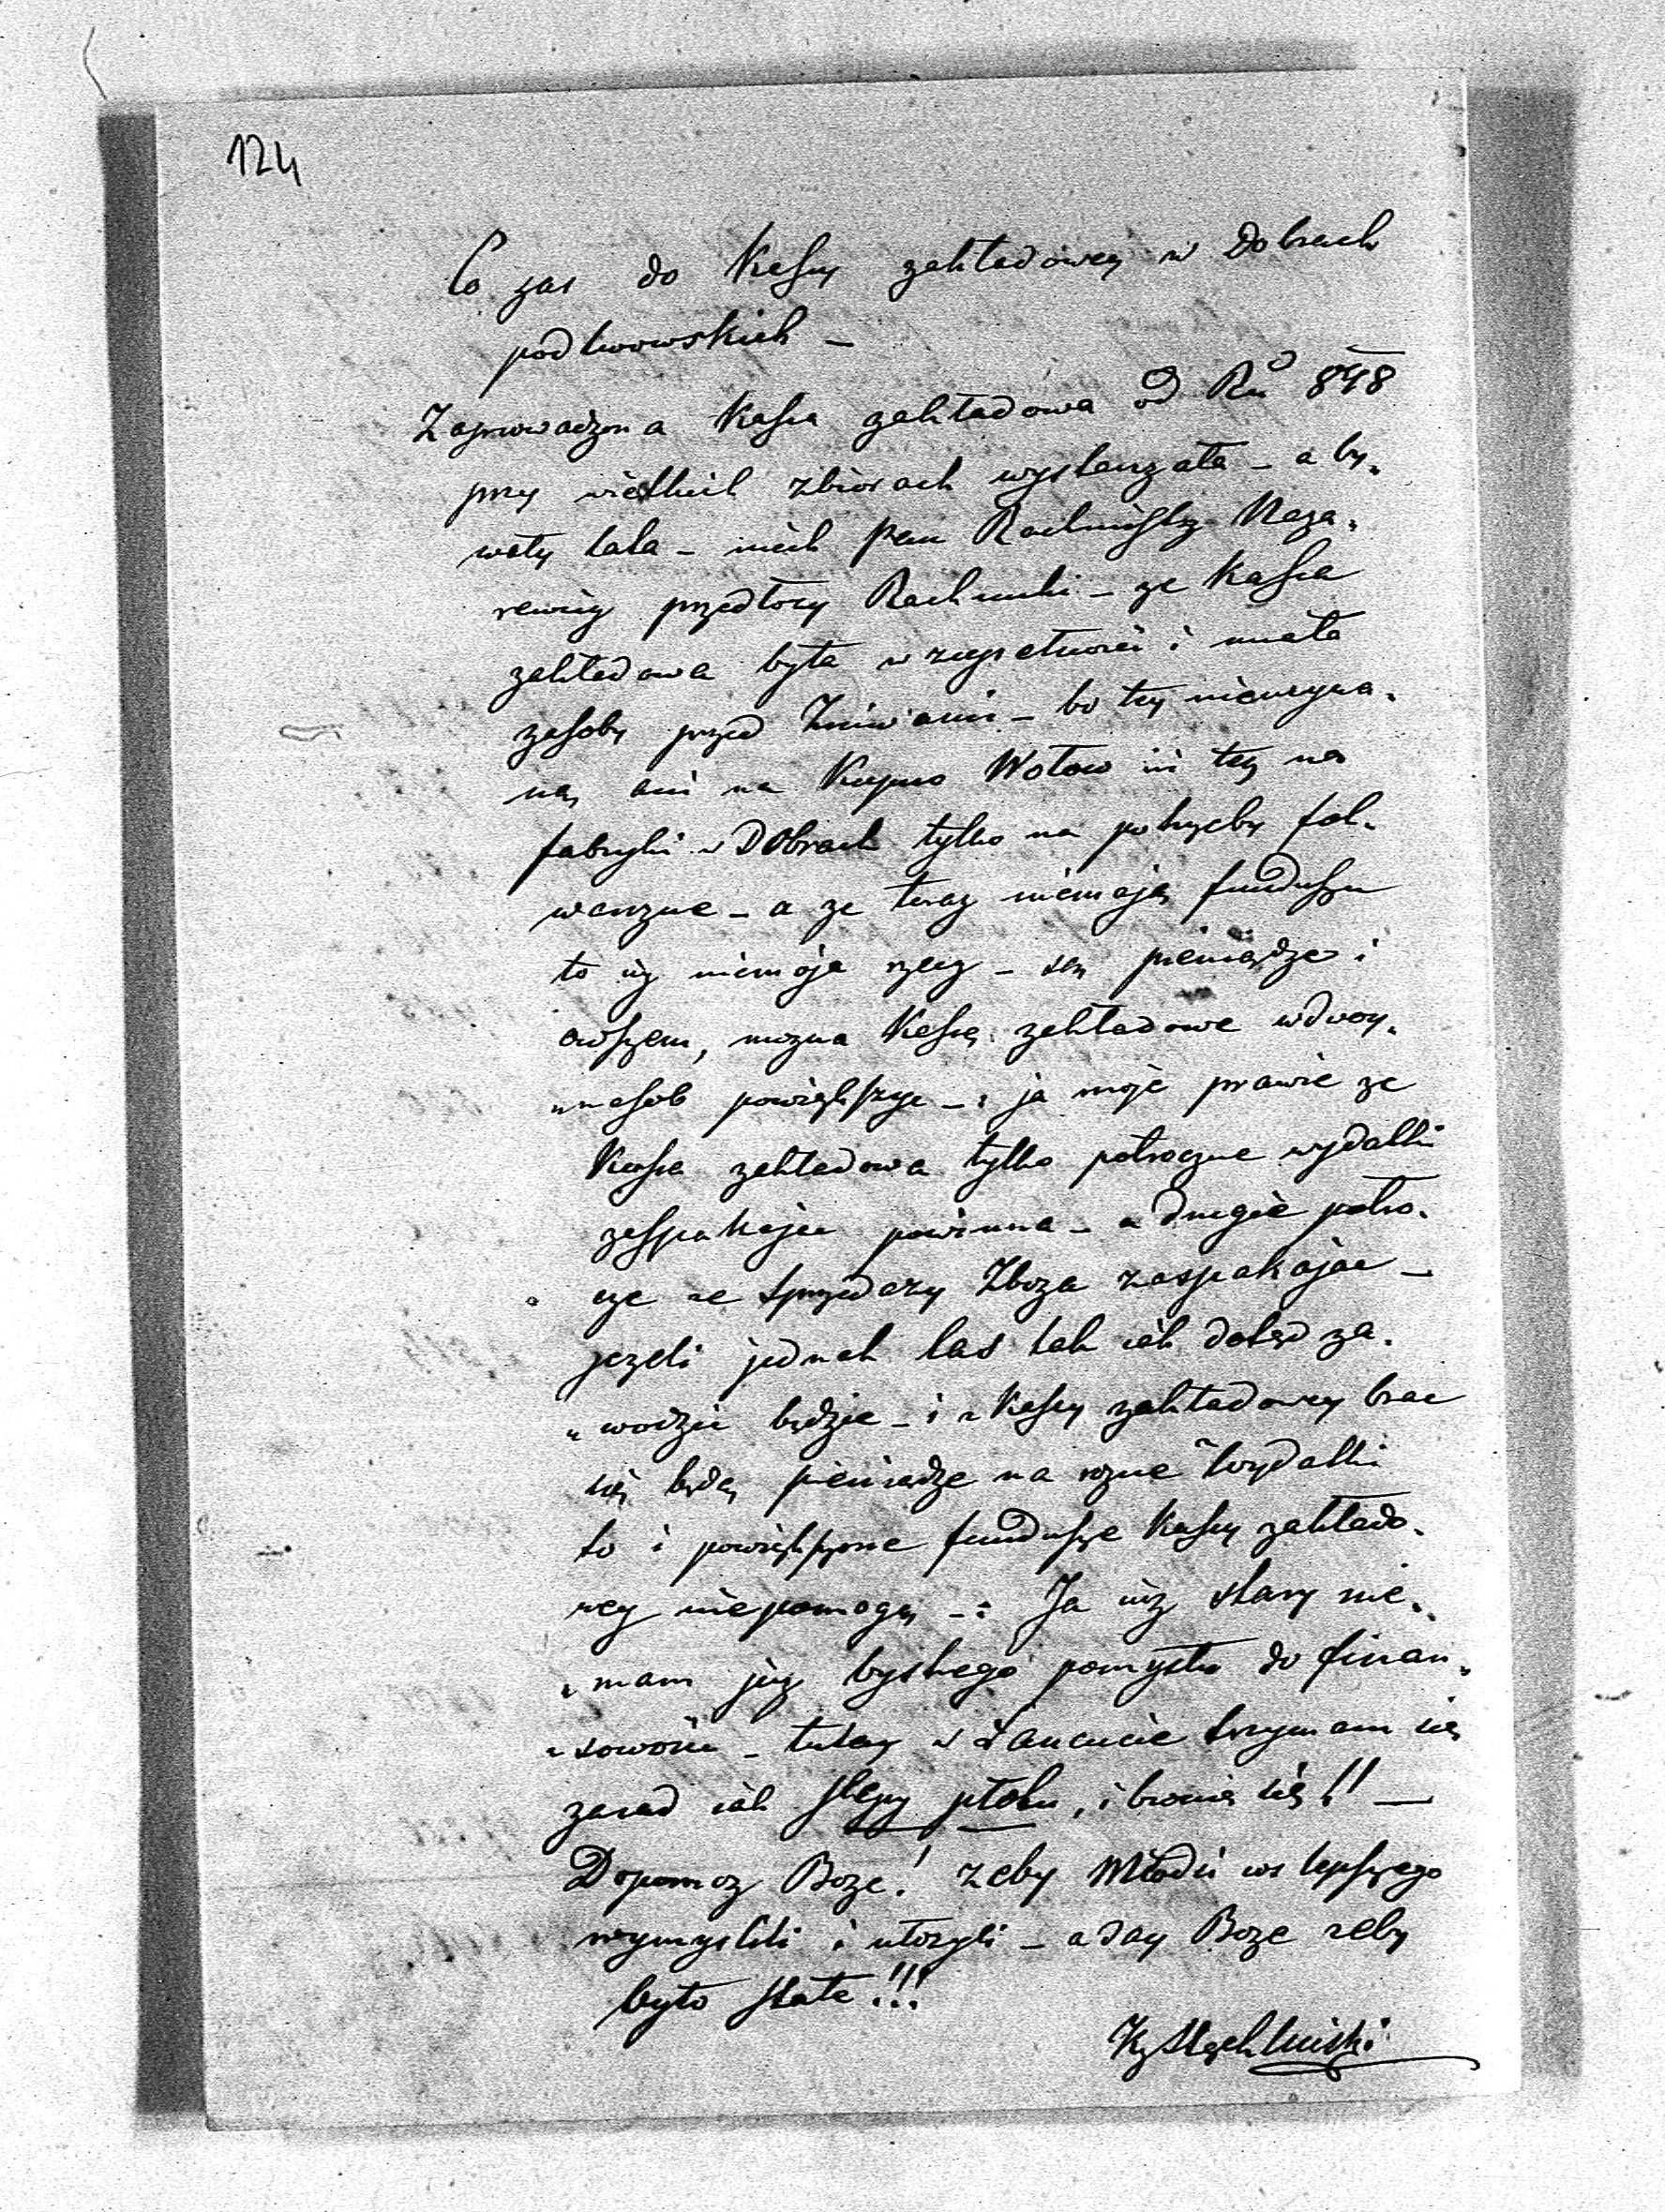 124
Co zas do Kassy zakładowey w Dobrach
podlwowskich –
Zaprowadzona Kassa zakładowa od Ru 848
przy wielkich zbiorach wystarczała – a by„
wały lata – niech Pan Rachmistrz Naza„
rewicz przedłozy Rachunki – ze Kassa
zakładowa była w zupełnosci i miała
zasoby przed Zniwami – bo tez nieuzyva„
no, ani na Kupno Wołow ni tez na
fabryki w Dobrach tylko na potrzeby fol„
warczne – a ze teraz niemają funduszu
to iuz niemoja rzecz – są pieniądze i
owszem, mozna Kassę zakładowe wdwoy„
„nasob powiększyc –: ja moje prawie ze
Kassa zakładowa tylko połroczne wydatki
zaspakajac powinna – a drugie połro„
cze ze sprzedazy Zboza zaspakajac –
jezeli jednak las tak iak dotąd za„
„wodzic będzie – i z Kassy zakładowey brac
się będą pieniądze na rozne Wydatki
to i powiększone fundusze Kassy zakłado„
wey niepomogą –: Ja iuz stary nie„
„mam juz bystrego pomysłu do finan„
„sowosci – tutay w Łancucie trzymam się
zasad iak slepy płotu, i bronię się!! –
Dopomoz Boze! zeby Młodzi cos lepszego
wymyslili i ułozyli – a day Boze zeby
było stałe!!!